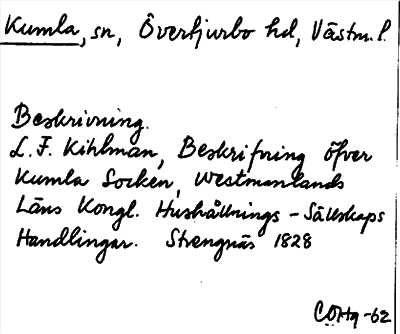 Kumla, sn, Övertjurbo hd, Västm. l.
Beskrivning.
L. F. Kihlman, Beskrifning öfver
Kumla Socken, Westmanlands
Läns Kongl. Hushållnings-Sällskaps
Handlingar. Strengnäs 1828